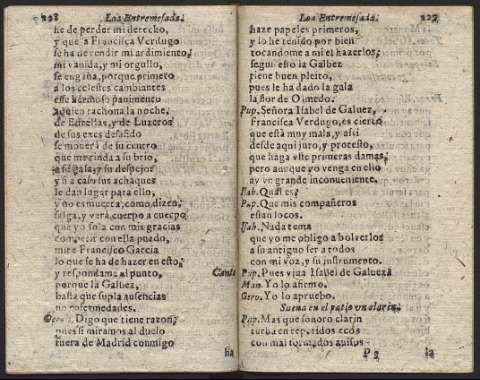 228 Loa Entremesada.
he de perder mi derecho,
y que a Francisca Verdugo
se ha de rendir mi ardimiento,
mi vanida, y mi orgullo,
se engaña, porque primeto
a los celestes cambiantes
esse hermoso pauimento
a quien tachona la noche,
de Estrellas, y de Luzeros
de sus exes desasido
se mouerà de su centro
que me rinda a su brio,
a su gala, y su despejo
y si a caso sus achaques
le dan lugar para ello,
y no es muerta, como dizen,
salga, y verà cuerpo a cuerpo
que yo sola con mis gracias
competir con ella puedo,
mire Francisco Garcia
lo que se ha de hazer en esto,
y respondame al punto,
porque la Galbez,
basta que supla ausencias
no enfermedades.
Gero. Digo que tiene razon,
pues si miramos al duelo
fuera de Madrid conmigo
ha
Loa Entremesada. 227
haze papeles primeros,
y lo he tenido por bien
tocandome a mi el hazerlos,
segun esto la Galbez
tiene buen pleito,
pues le ha dado la gala
la flor de Olmedo.
Pup. Señora Isabel de Galuez,
Francisca Verdugo, es cierto
que està muy mala, y assi
desde aqui juro, y protesto,
que haga vste primeras damas,
pero aunque yo venga en ello
ay vn grande inconueniente.
Isab. Qual es?
Pup. Que mis compañeros
estan locos.
Isab. Nada tema
que yo me obligo a boluerlos
a su antiguo ser a todos
con mi voz, y su instrumento.
Cantā Pup. Pues viua Isabel de Galuez
Man. Yo lo afirmo.
Gero. Yo lo apruebo.
Suena en el patio vn clarin.
Pup. Mas que sonoro clarin
turba en repetidos ecos
con mal formados auisos
P 2 la